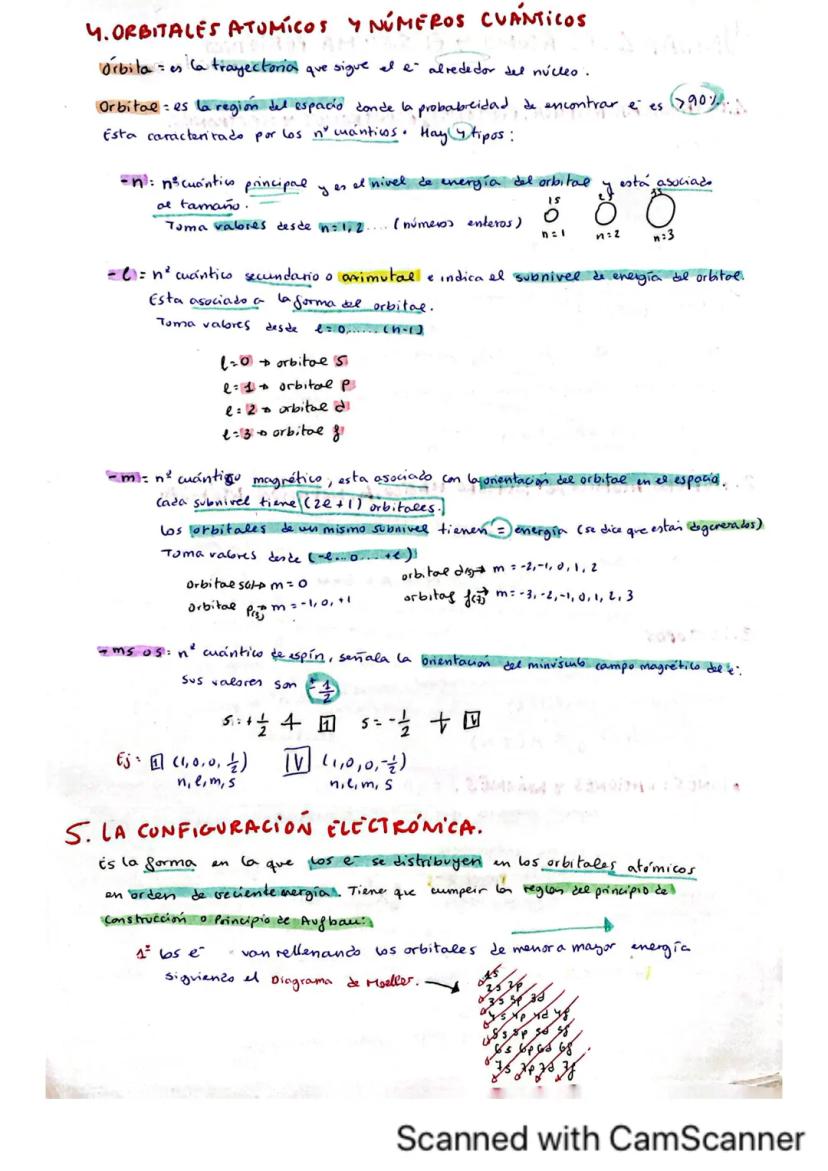 4. ORBITALES ATOMICOS Y NÚMEROS CUÁNTICOS
Órbita = es la trayectoria que sigue el e⁻ alrededor del núcleo.
Orbital = es la región del espacio donde la probabilidad de encontrar e⁻ es >90%.
Esta caracterizado por los nº cuánticos. Hay 4 tipos:
- n = nº cuántico principal y es el nivel de energía del orbital y está asociado
al tamaño.
1s 2s 3s
Toma valores desde n=1,2.... (números enteros)
n=1 n=2 n=3
- l = nº cuántico secundario o azimutal e indica el subnivel de energía del orbital.
Esta asociado a la forma del orbital.
Toma valores desde l=0,......(n-1)
l=0 → orbital s
l=1 → orbital p
l=2 → orbital d
l=3 → orbital f
- m = nº cuántico magnético, esta asociado con la orientación del orbital en el espacio.
Cada subnivel tiene (2l+1) orbitales.
Los orbitales de un mismo subnivel tienen = energía (se dice que están degenerados)
Toma valores desde (-l...0....+l)
orbital s(1)→ m=0 orbital d(5)→ m=-2,-1,0,1,2
orbital p(3)→ m=-1,0,+1 orbital f(7)→ m=-3,-2,-1,0,1,2,3
- ms o s = nº cuántico de espín, señala la orientación del minúsculo campo magnético del e⁻.
Sus valores son ±1/2
s=+1/2 s=-1/2
Ej: (1,0,0,1/2) (1,0,0,-1/2)
n,l,m,s n,l,m,s
5. LA CONFIGURACIÓN ELECTRÓNICA.
Es la forma en la que los e⁻ se distribuyen en los orbitales atómicos
en orden de creciente energía. Tiene que cumplir las reglas del principio de
construcción o Principio de Aufbau:
1º los e⁻ van rellenando los orbitales de menor a mayor energía
siguiendo el Diagrama de Moeller. →
1s
2s 2p
3s 3p 3d
4s 4p 4d 4f
5s 5p 5d 5f
6s 6p 6d 6f
7s 7p 7d 7f
Scanned with CamScanner